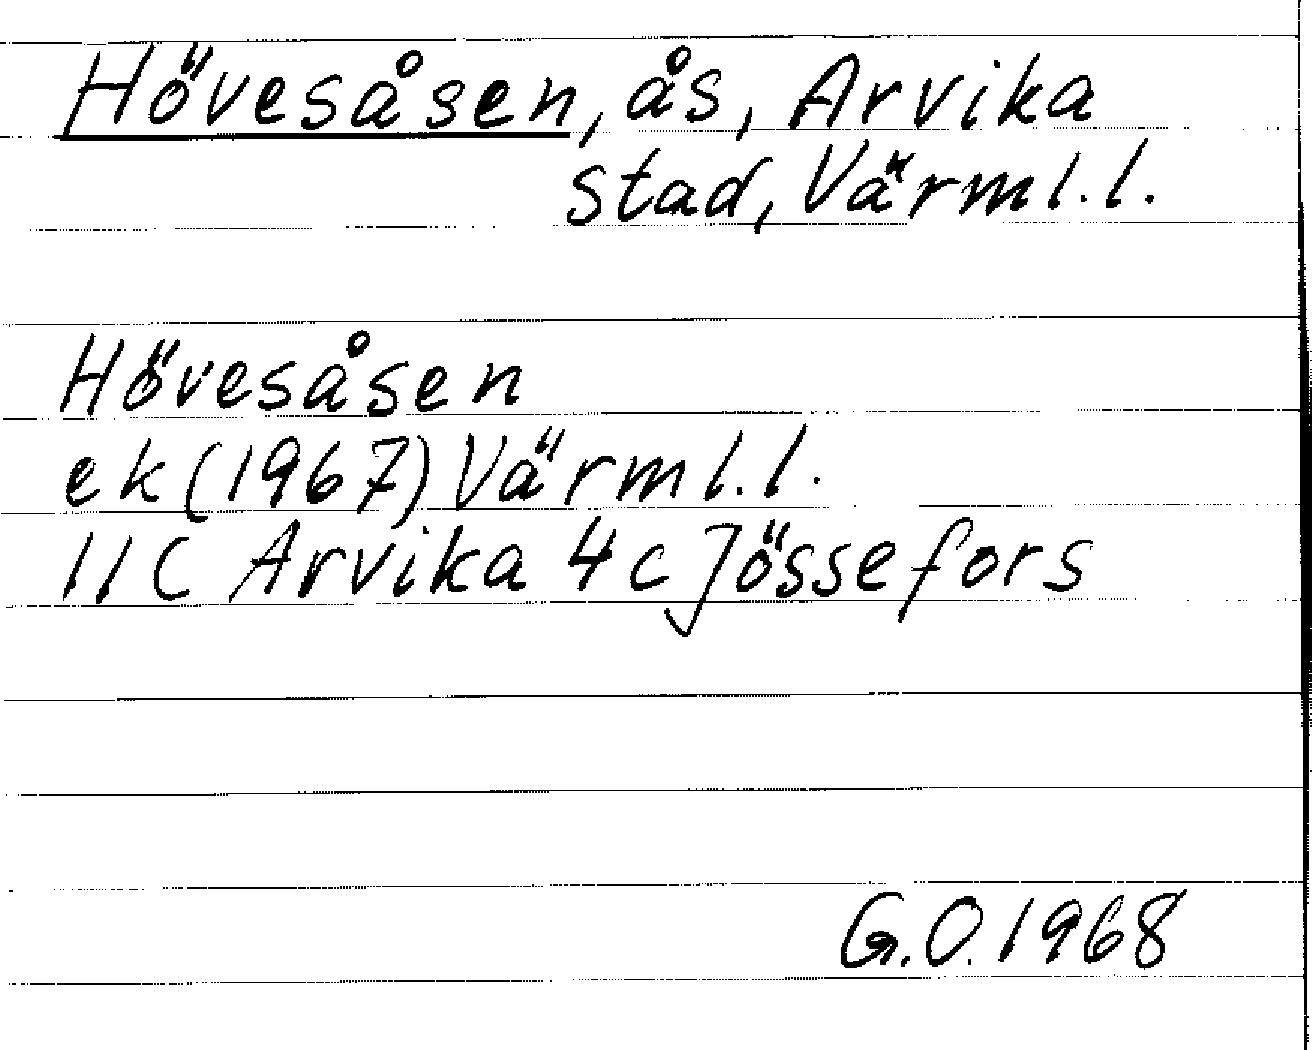 Hövesåsen, ås, Arvika
stad, Värml.l.
Hövesåsen
ek (1967) Värml.l.
11C Arvika 4c Jössefors
G.O. 1968